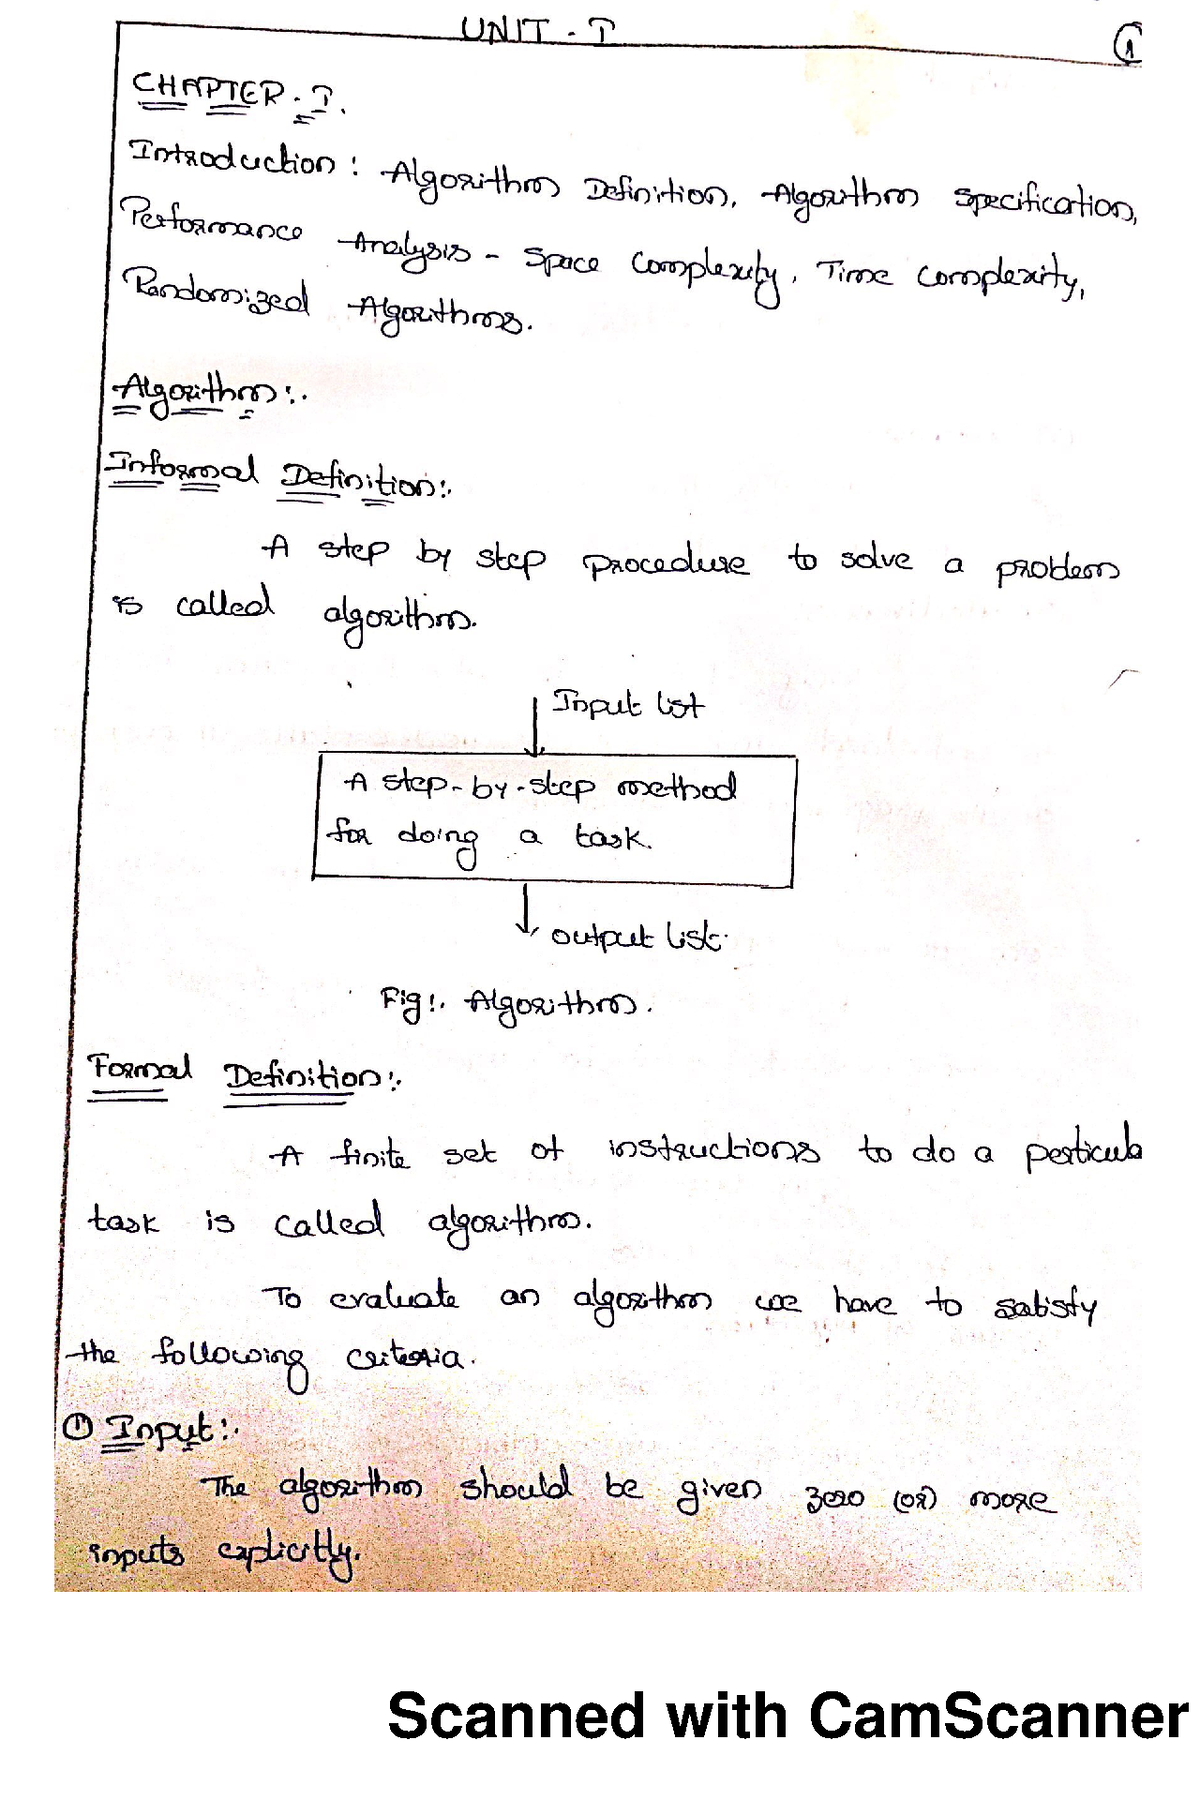 UNIT - I
1
CHAPTER - I.
Introduction : Algorithm Definition, Algorithm Specification,
Performance Analysis - Space Complexity, Time Complexity,
Randomized Algorithms.
Algorithm:.
Informal Definition:.
A step by step procedure to solve a problem
is called algorithm.
Input list
A step-by-step method
for doing a task.
output list.
Fig:. Algorithm.
Formal Definition:.
A finite set of instructions to do a perticula
task is called algorithm.
To evaluate an algorithm we have to satisfy
the following criteria.
1 Input:.
The algorithm should be given zero (or) more
inputs explicitly.
Scanned with CamScanner